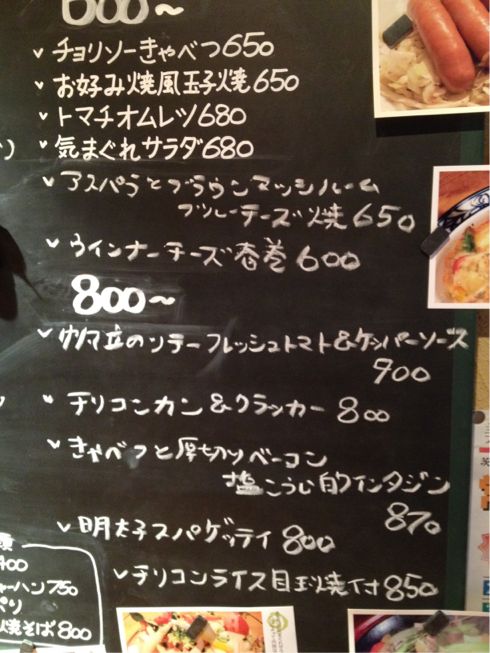 600~
チョリソーきゃべつ650
お好み焼風玉子焼650
トマチオムレツ680
気まぐれサラダ680
アスパラとブラウンマッシルーム
ブルーチーズ焼650
ウインナーチーズ春巻600
800~
のソテーフレッシュトマト&ケッパーソース
900
チリコンカン&クラッカー800
きゃべつと厚切りベーコン
塩こうじ的インタジン
870
明太子スパゲッティ800
チリコンライス目玉焼イ寸850
ャーハン750
焼そば800